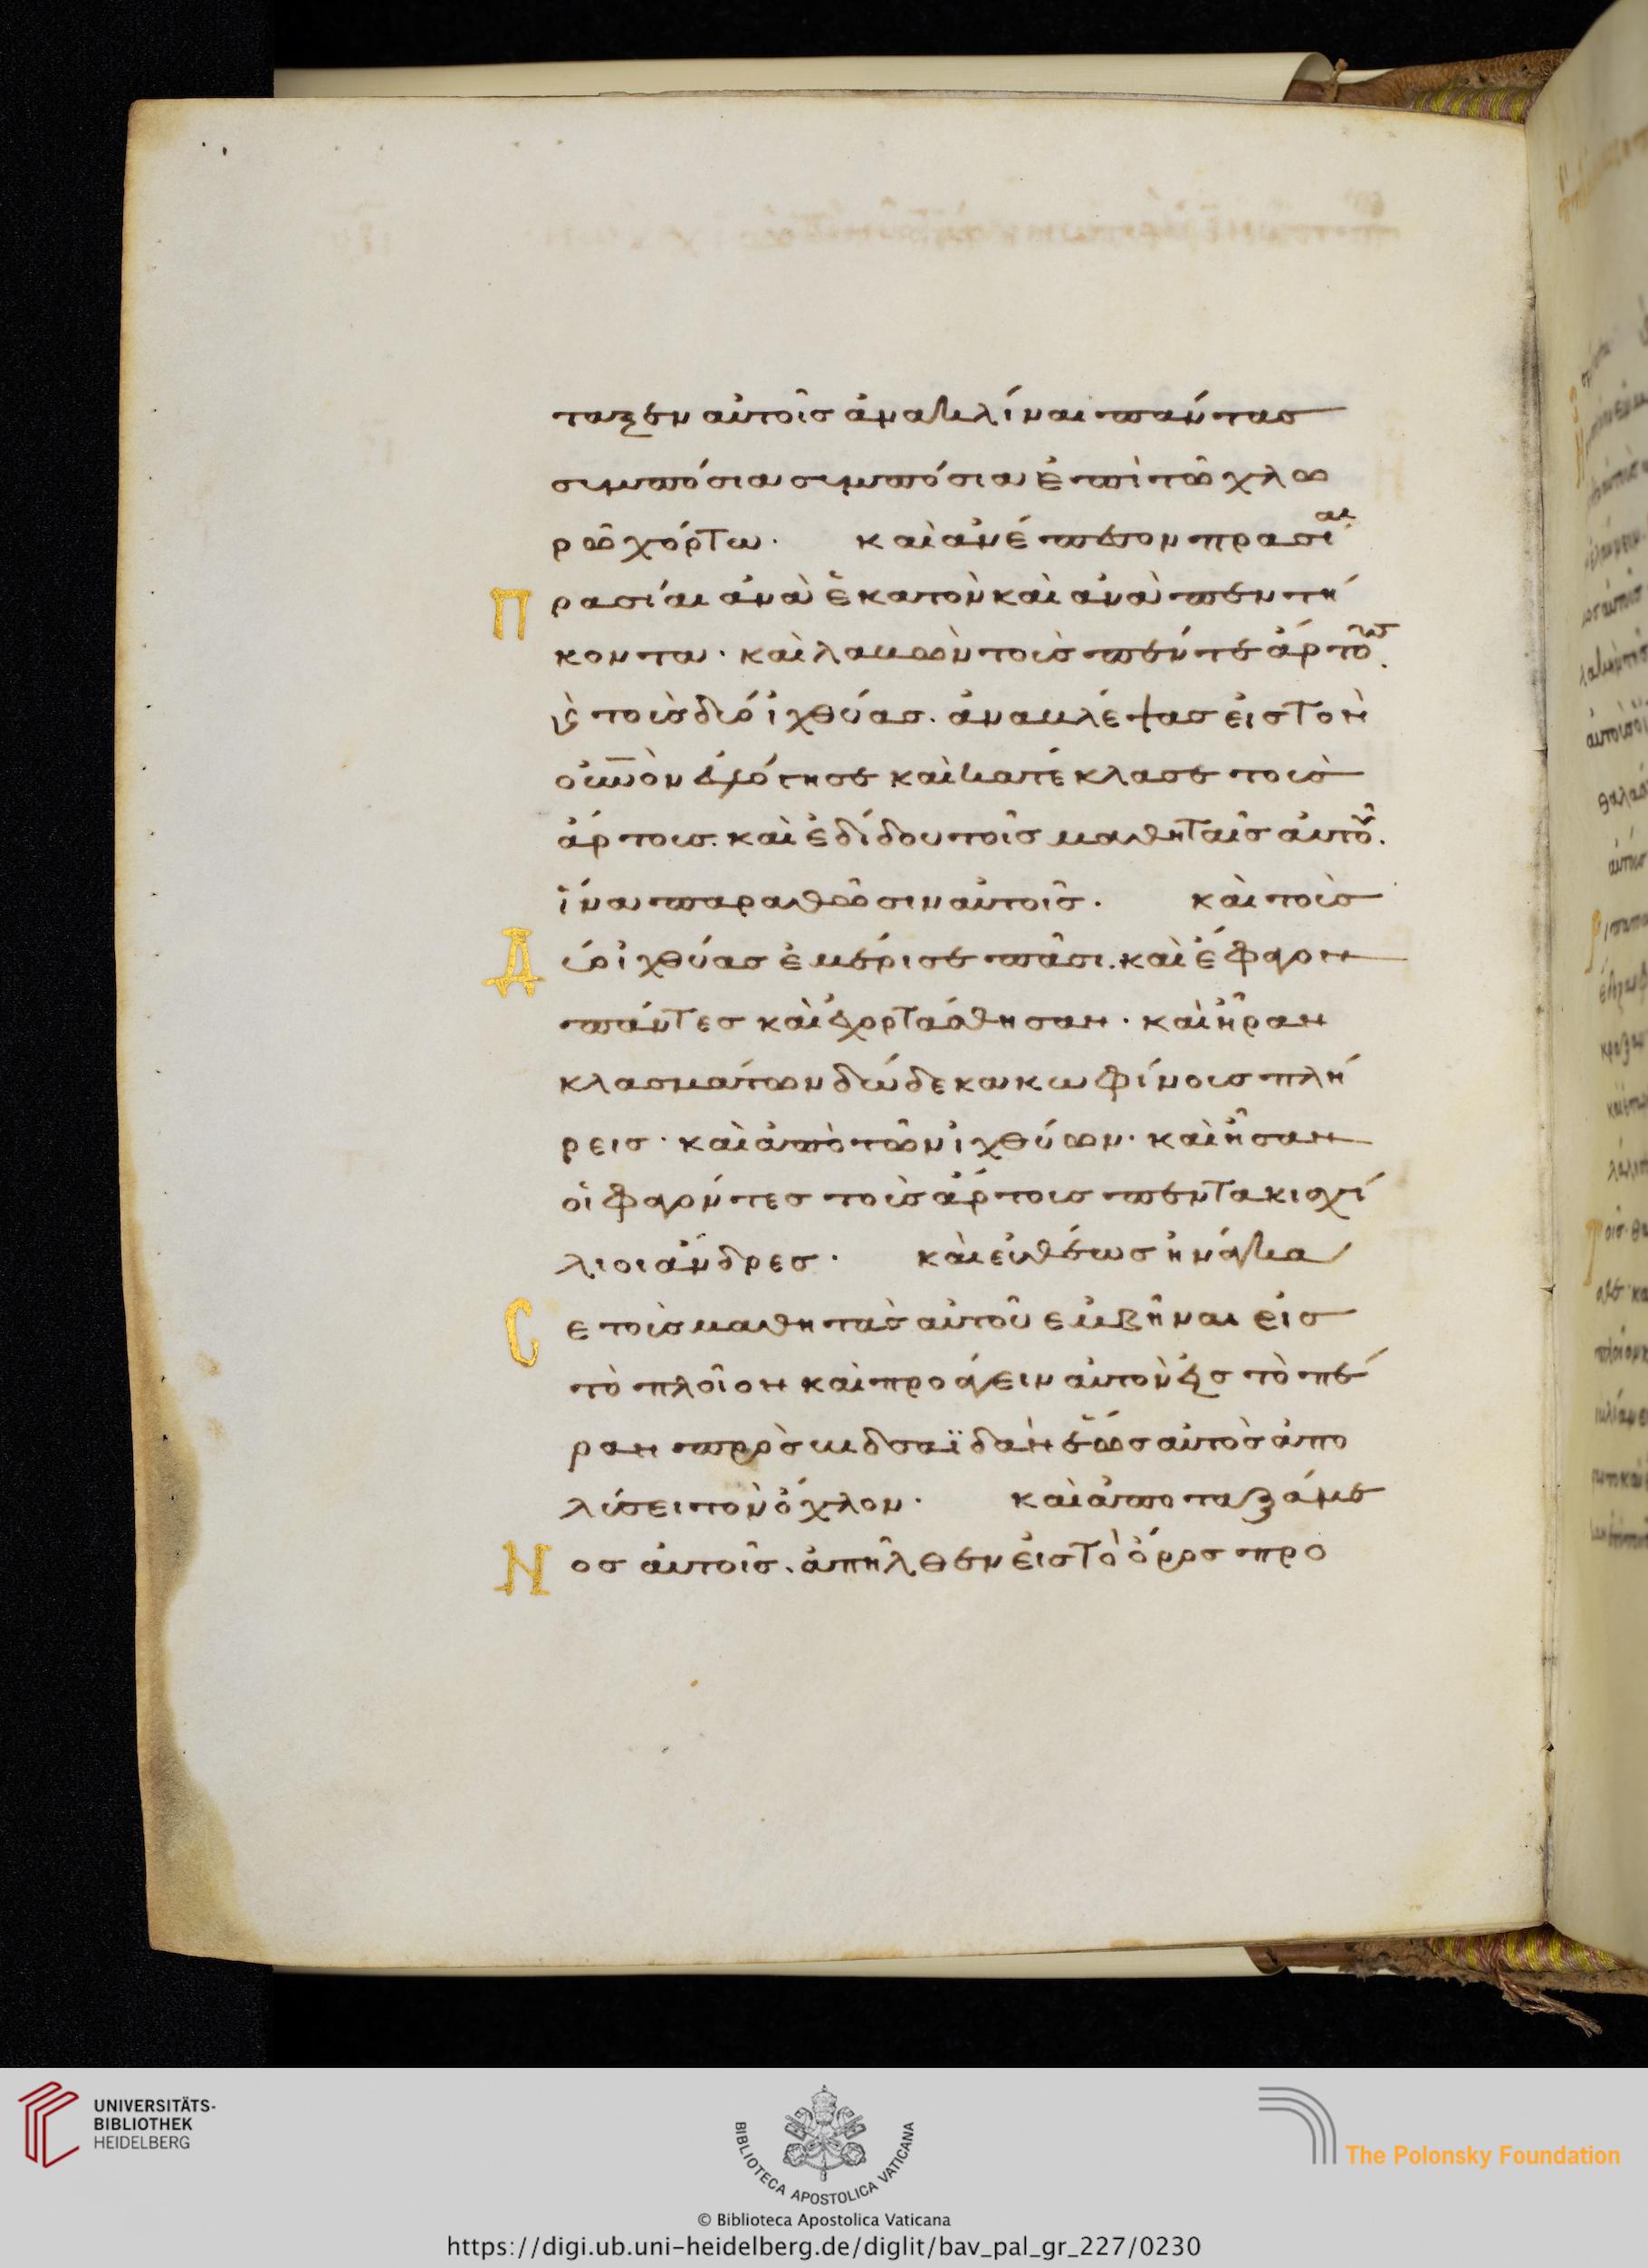 ταξεν αὐτοῖσ ἀνακλίναι πάντασ
συμπόσια συμπόσια ἐπὶ τῶ χλω
ρῶ χόρτω. καὶ ἀνέπεσον πρασιαι
Π ρασίαι ἀνὰ ἑκατὸν καὶ ἀνὰ πεντή
κοντα. καὶ λαβὼν τοὺσ πέντε ἄρτουσ.
κ̀ τοὺσ δύο ἰχθύασ. ἀναβλέψασ εἰσ τὸν
οὐνὸν εὐλόγησε καὶ κατέκλασε τοὺσ
ἄρτουσ. καὶ ἐδίδου τοῖσ μαθηταῖσ αὐτοῦ.
ἵνα παραθῶσιν αὐτοῖσ. καὶ τοὺσ
Δ ύο ἰχθύασ ἐμέρισε πᾶσι. καὶ ἔφαγον
πάντεσ καὶ ἐχορτάσθησαν. καὶ ἦραν
κλασμάτων δώδεκα κωφίνουσ πλή
ρεισ. καὶ ἀπὸ τῶν ἰχθύων. καὶ ἦσαν
οἱ φαγόντεσ τοὺσ ἄρτουσ πεντακισχί
λιοι ἄνδρεσ. καὶ εὐθέωσ ἠνάγκα
C ε τοὺσ μαθητὰσ αὐτοῦ ἐμβῆναι εἰσ
τὸ πλοῖον καὶ προάγειν αὐτὸν εἰσ τὸ πέ
ραν πρὸσ βιδσαϊδὰν ἕωσ αὐτὸσ ἀπο
λύσει τὸν ὄχλον. καὶ ἀποταξάμε
Ν οσ αὐτοῖσ. ἀπῆλθεν εἰσ τὸ ὄροσ προ
UNIVERSITÄTS-
BIBLIOTHEK
HEIDELBERG
BIBLIOTECA APOSTOLICA VATICANA
The Polonsky Foundation
© Biblioteca Apostolica Vaticana
https://digi.ub.uni-heidelberg.de/diglit/bav_pal_gr_227/0230